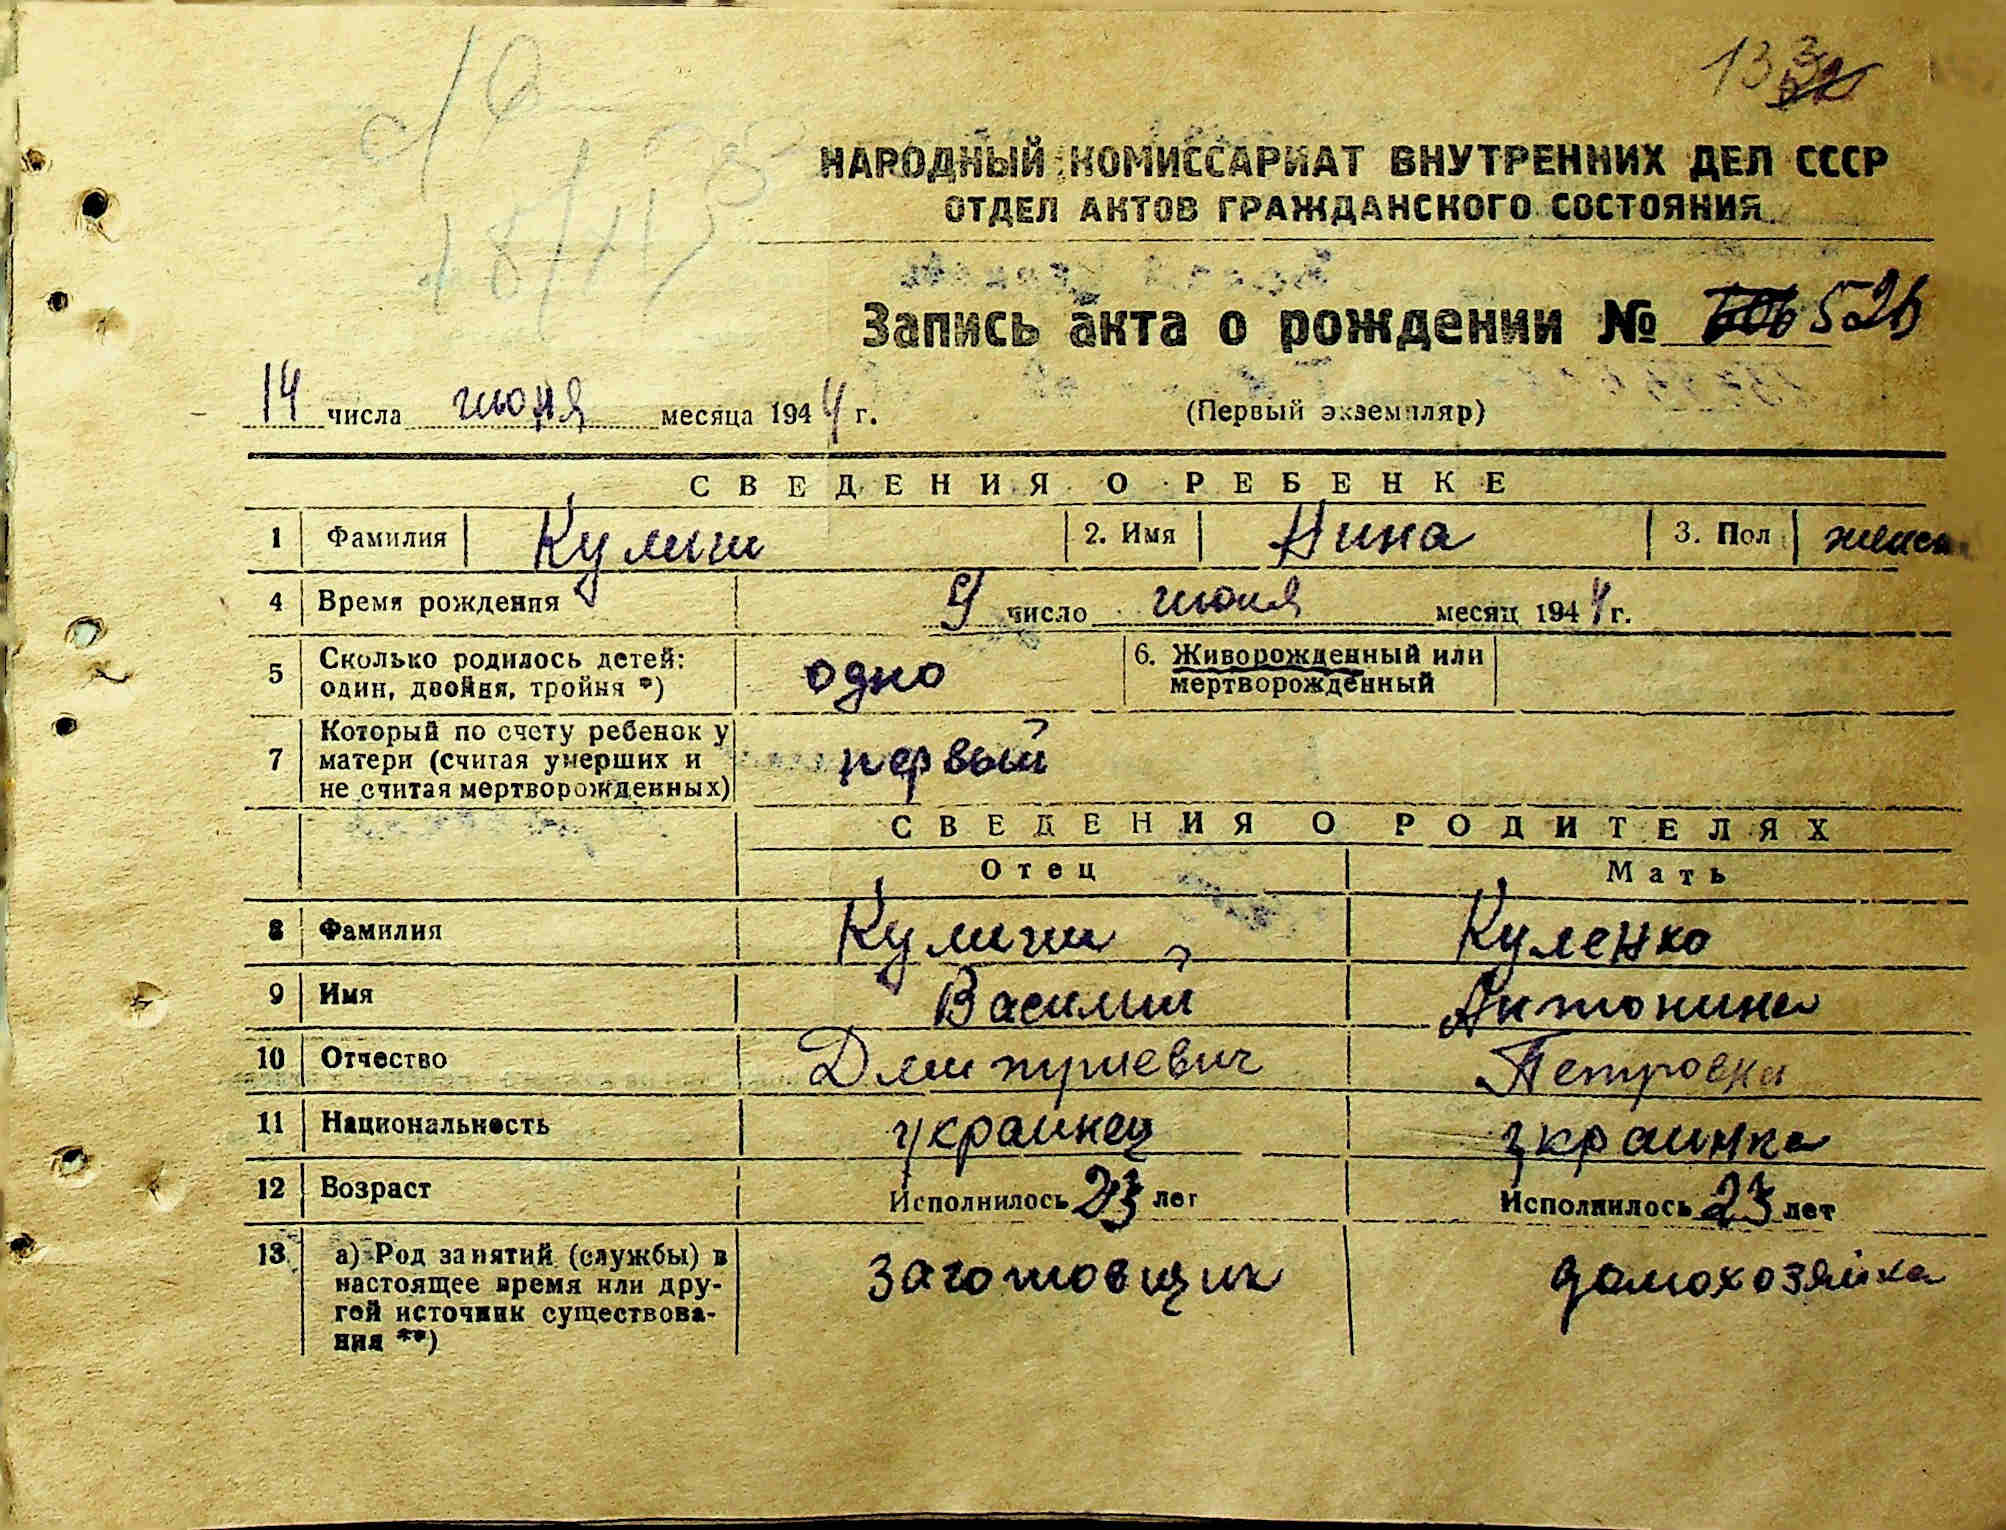 133
НАРОДНЫЙ КОМИССАРИАТ ВНУТРЕННИХ ДЕЛ СССР
ОТДЕЛ АКТОВ ГРАЖДАНСКОГО СОСТОЯНИЯ
Запись акта о рождении № 526
14 числа июня месяца 1944 г. (Первый экземпляр)
СВЕДЕНИЯ О РЕБЕНКЕ
1 Фамилия Кулиш 2. Имя Нина 3. Пол женск
4 Время рождения 9 число июня месяц 1944 г.
5 Сколько родилось детей: один, двойня, тройня *) одно 6. Живорожденный или мертворожденный
7 Который по счету ребенок у матери (считая умерших и не считая мертворожденных) первый
СВЕДЕНИЯ О РОДИТЕЛЯХ
Отец Мать
8 Фамилия Кулиш Куленко
9 Имя Василий Антонина
10 Отчество Дмитриевич Петровна
11 Национальность украинец украинка
12 Возраст Исполнилось 23 лет Исполнилось 23 лет
13 а) Род занятий (службы) в настоящее время или другой источник существования **) заготовщик домохозяйка